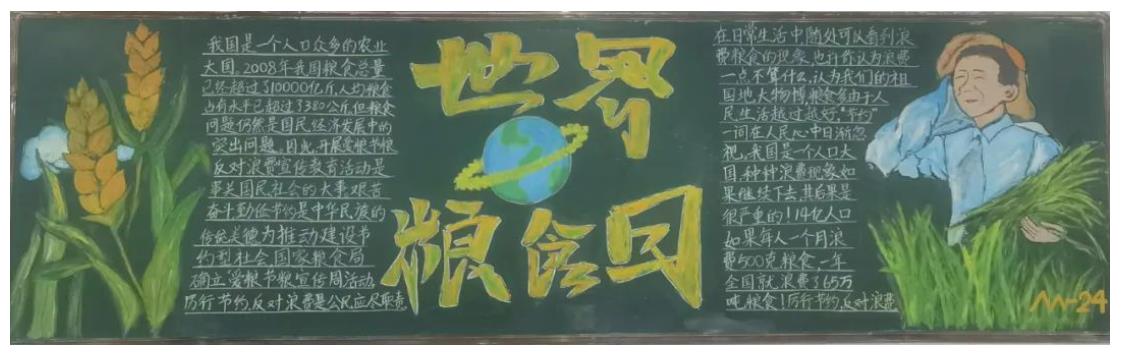 我国是一个人口众多的农业
大国,2008年我国粮食总量
已经超过了10000亿斤,人均粮食
占有水平已超过了380公斤但粮食
问题仍然是国民经济发展中的
突出问题。因此,开展爱粮节粮
反对浪费宣传教育活动是
事关国民社会的大事艰苦
奋斗勤俭节约是中华民族的
传统美德为推动建设节
约型社会国家粮食局
确立爱粮节粮宣传周活动,
厉行节约,反对浪费是公民应尽职责
世界
粮食日
在日常生活中随处可以看到浪
费粮食的现象,也许你认为浪费
一点不算什么,认为我们的祖
国地大物博,粮食多由于人
民生活越过越好,“节约”
一词在人民心中日渐忽
视,我国是个人口大
国,种种浪费现象如
果继续下去,其后果是
很严重的!14亿人口
如果每人一个月浪
费500克粮食,一年
全国就浪费了65万
吨粮食!厉行节约,反对浪费
-24